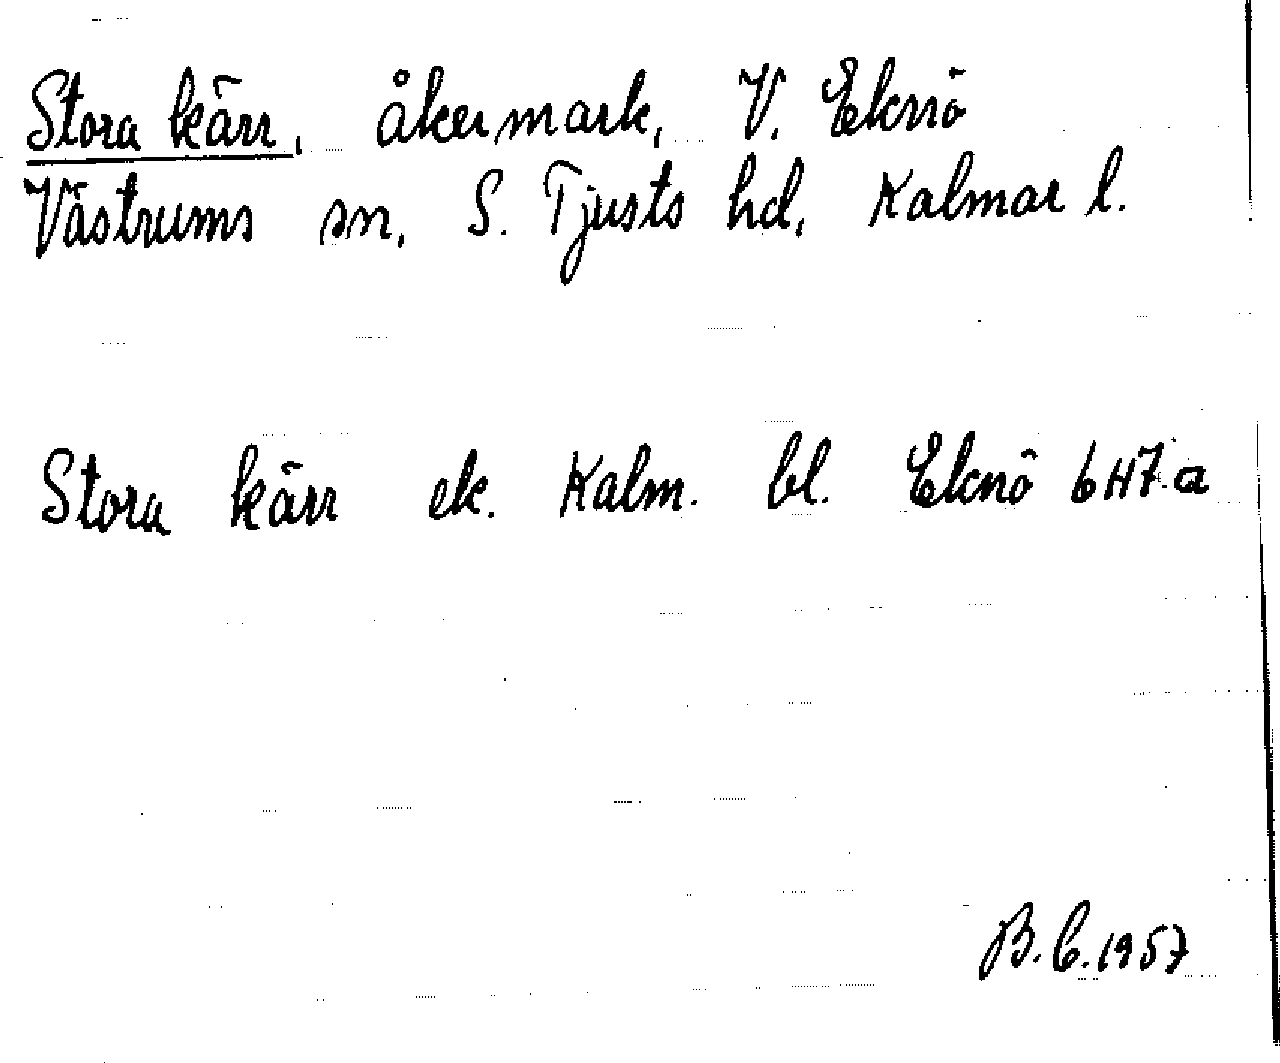 Stora kärr, åkermark, V. Eknö
Västrums sn, S. Tjusts hd, Kalmar l.
Stora kärr ek. Kalm. bl. Eknö 6H7a
B.C. 1957